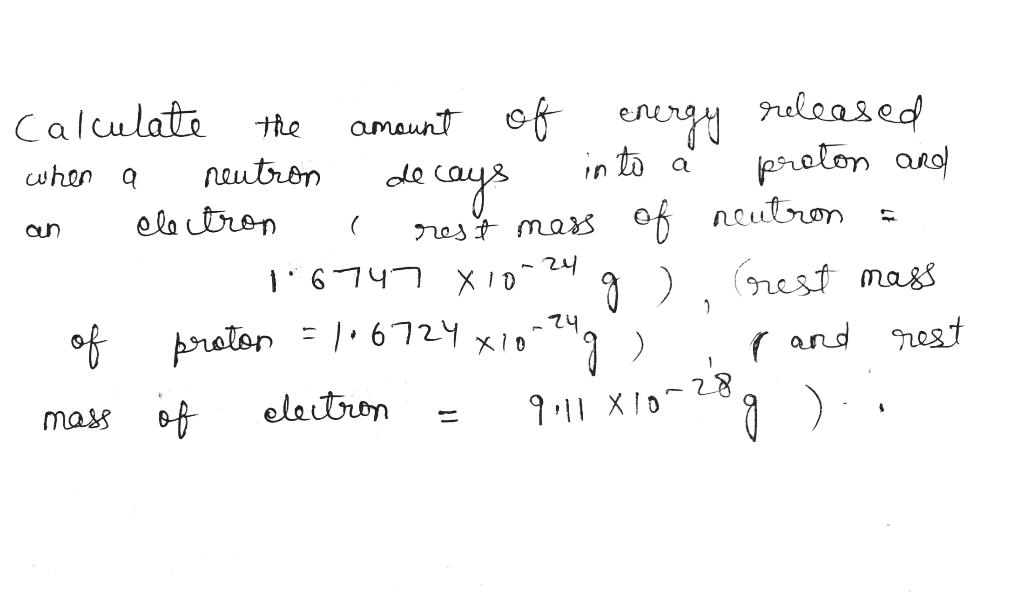 Calculate the amount of energy released
when a neutron decays into a proton and
an electron ( rest mass of neutron =
1.6747 × 10⁻²⁴ g ) , (rest mass
of proton = 1.6724 × 10⁻²⁴ g ) , ( and rest
mass of electron = 9.11 × 10⁻²⁸ g ) .